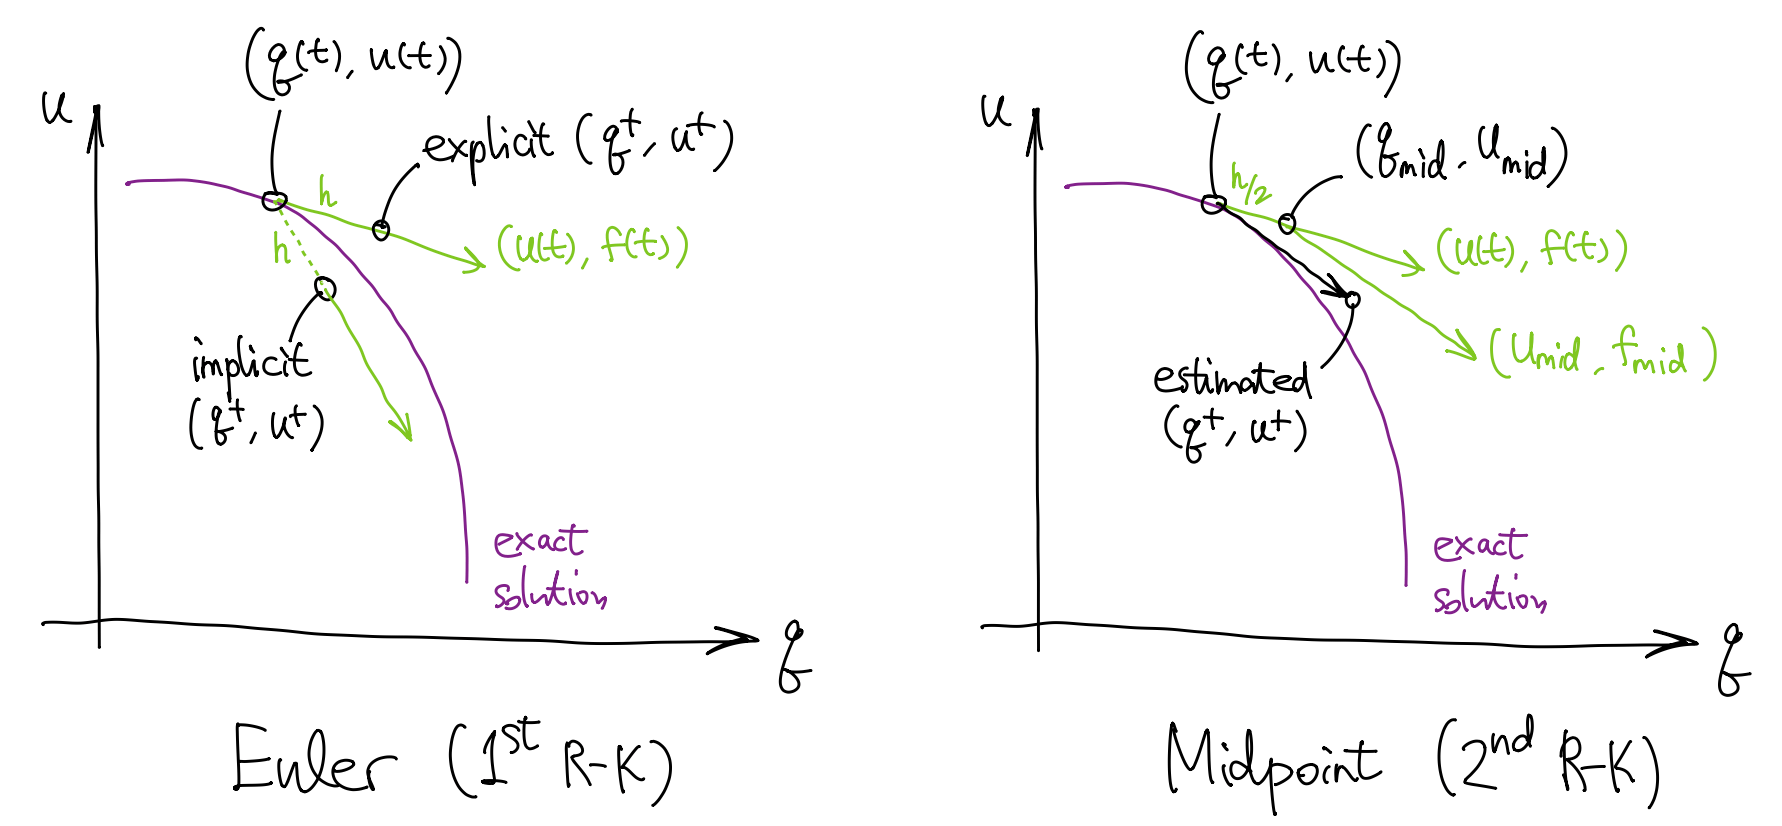 (q(t), u(t))
u
explicit (q⁺, u⁺)
h
(u(t), f(t))
h
implicit
(q⁺, u⁺)
exact
solution
q
Euler (1st R-K)
(q(t), u(t))
u
(qmid, umid)
h/2
(u(t), f(t))
(umid, fmid)
estimated
(q⁺, u⁺)
exact
solution
q
Midpoint (2nd R-K)